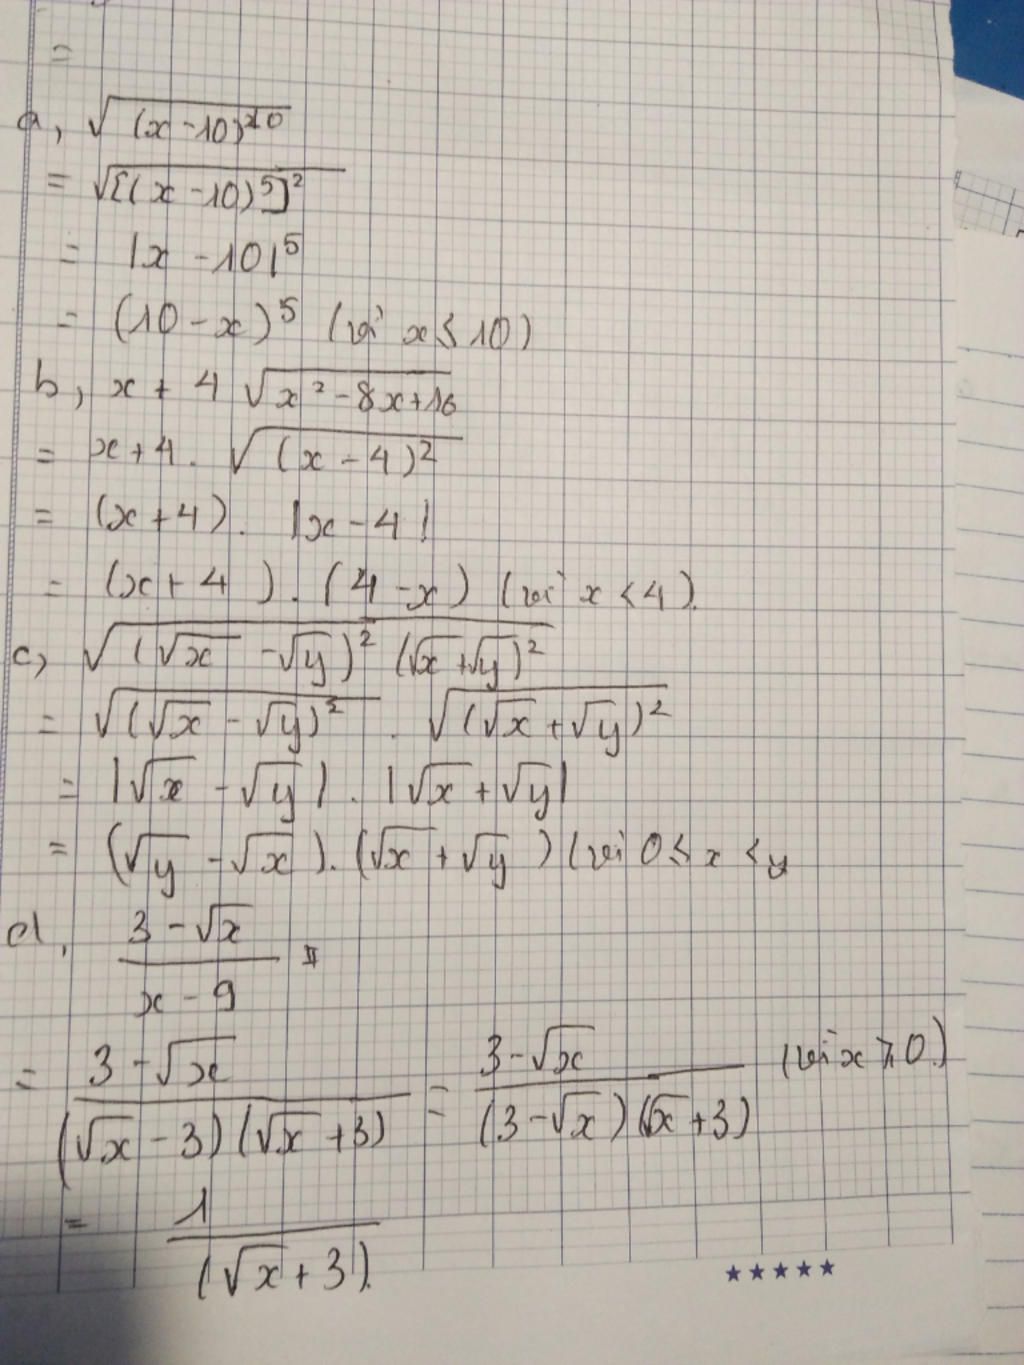 =
a, √(x-10)¹⁰
= √[(x-10)⁵]²
= |x-10|⁵
= (10-x)⁵ (vì x ≤ 10)
b, x + 4 √x²-8x+16
= x+4. √(x-4)²
= (x+4). |x-4|
= (x+4). (4-x) (vì x < 4).
c, √(√x - √y)² (√x+√y)²
= √(√x - √y)² . √(√x + √y)²
= |√x - √y| . |√x + √y|
= (√y - √x). (√x + √y) (vì 0 ≤ x < y
d, (3-√x)/(x-9)
= (3-√x)/((√x-3)(√x+3)) = (3-√x)/((3-√x)(√x+3)) (vì x ≥ 0.)
= 1/(√x+3).